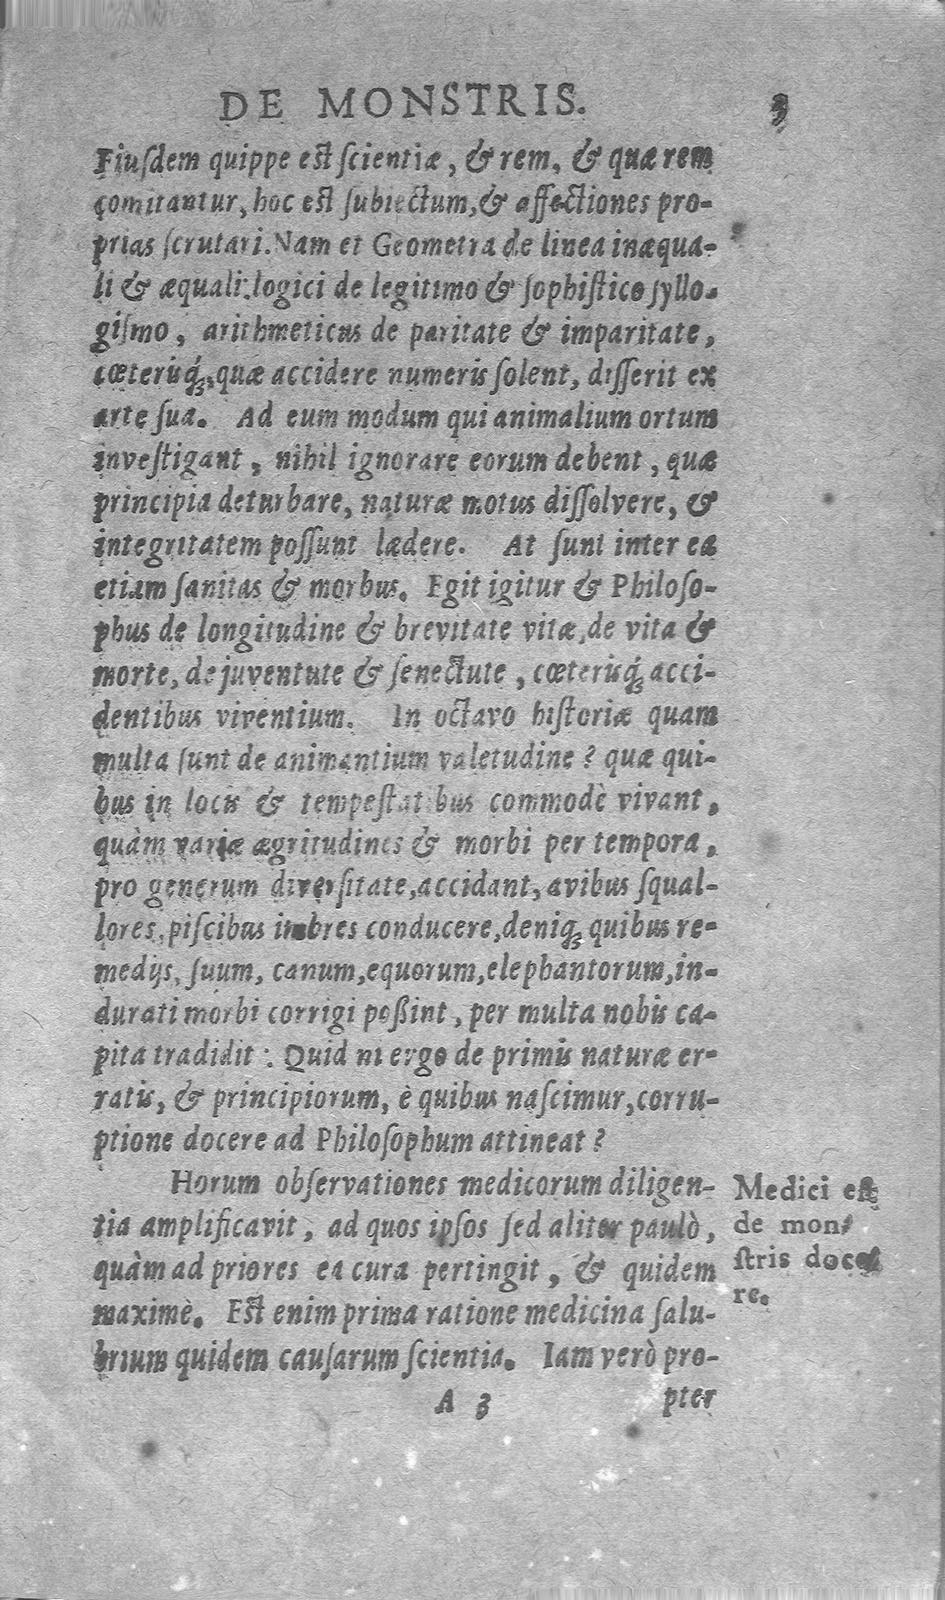 DE MONSTRIS. 3
Eiuſdem quippe eſt ſcientiæ, & rem, & quæ rem
comitantur, hoc eſt ſubiectum, & affectiones pro-
prias ſcrutari. Nam et Geometra de linea inæqua-
li & æquali: logici de legitimo & ſophiſtico ſyllo-
giſmo, arithmeticus de paritate & imparitate,
cœterisq́ꝫ, quæ accidere numeris ſolent, diſſerit ex
arte ſua. Ad eum modum qui animalium ortum
inveſtigant, nihil ignorare eorum debent, quæ
principia deturbare, naturæ motus diſſolvere, &
integritatem poſſunt lædere. At ſunt inter ea
etiam ſanitas & morbus. Egit igitur & Philoſo-
phus de longitudine & brevitate vitæ, de vita &
morte, de juventute & ſenectute, cœterisq́ꝫ acci-
dentibus viventium. In octavo hiſtoriæ quam
multa ſunt de animantium valetudine? quæ qui-
bus in locis & tempeſtatibus commodè vivant,
quàm variæ ægritudines & morbi per tempora,
pro generum diverſitate, accidant, avibus ſqual-
lores, piſcibus imbres conducere, deniqꝫ quibus re-
medijs, ſuum, canum, equorum, elephantorum, in-
durati morbi corrigi poßint, per multa nobis ca-
pita tradidit: Quid ni ergo de primis naturæ er-
ratis, & principiorum, è quibus naſcimur, corru-
ptione docere ad Philoſophum attineat?
Horum obſervationes medicorum diligen-
tia amplificavit, ad quos ipſos ſed aliter paulò,
quàm ad priores ea cura pertingit, & quidem
maximè. Eſt enim prima ratione medicina ſalu-
brium quidem cauſarum ſcientia. Iam verò pro-
A 3 pter
Medici eſt
de mon-
ſtris doce-
re.